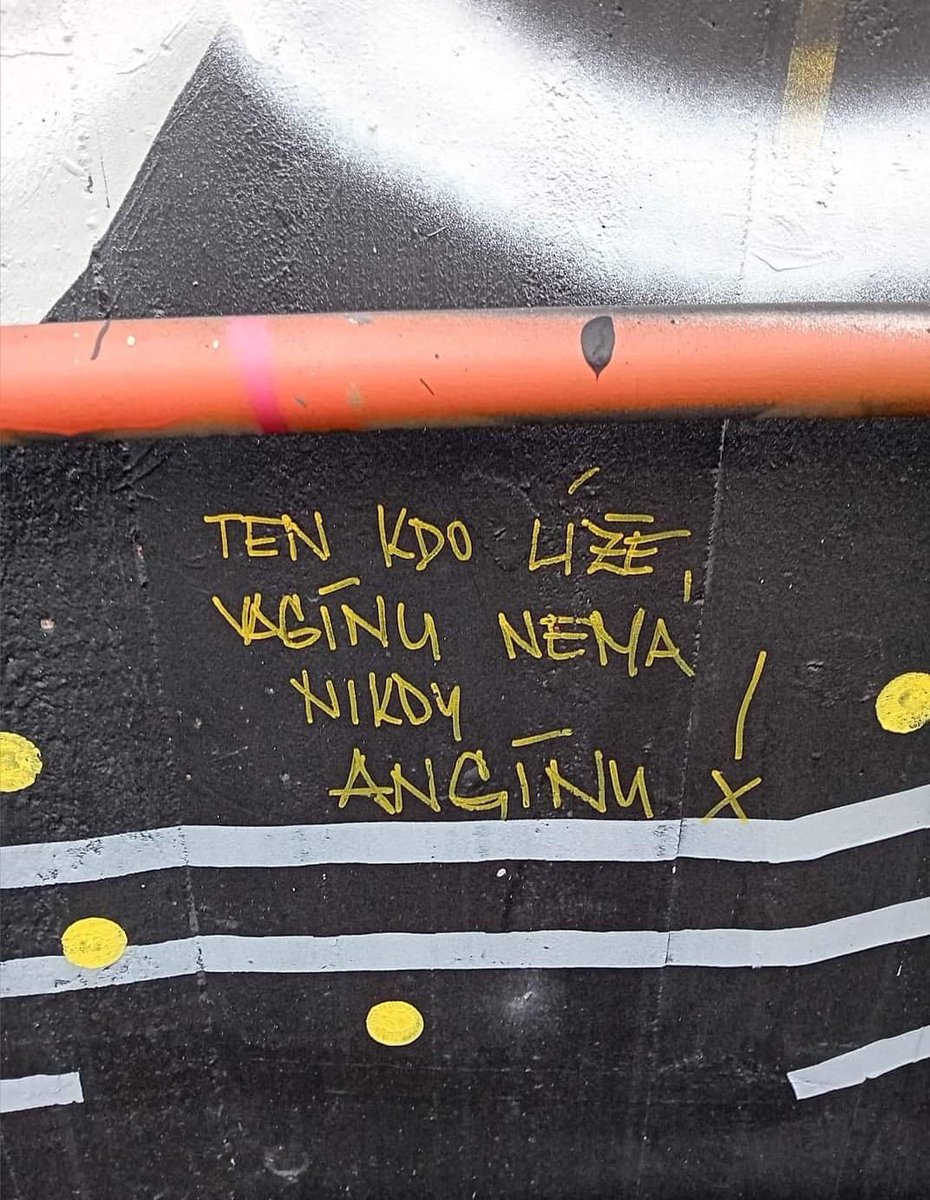 TEN KDO LÍŽE,
VAGÍNU NEMÁ
NIKDY
ANGÍNU!